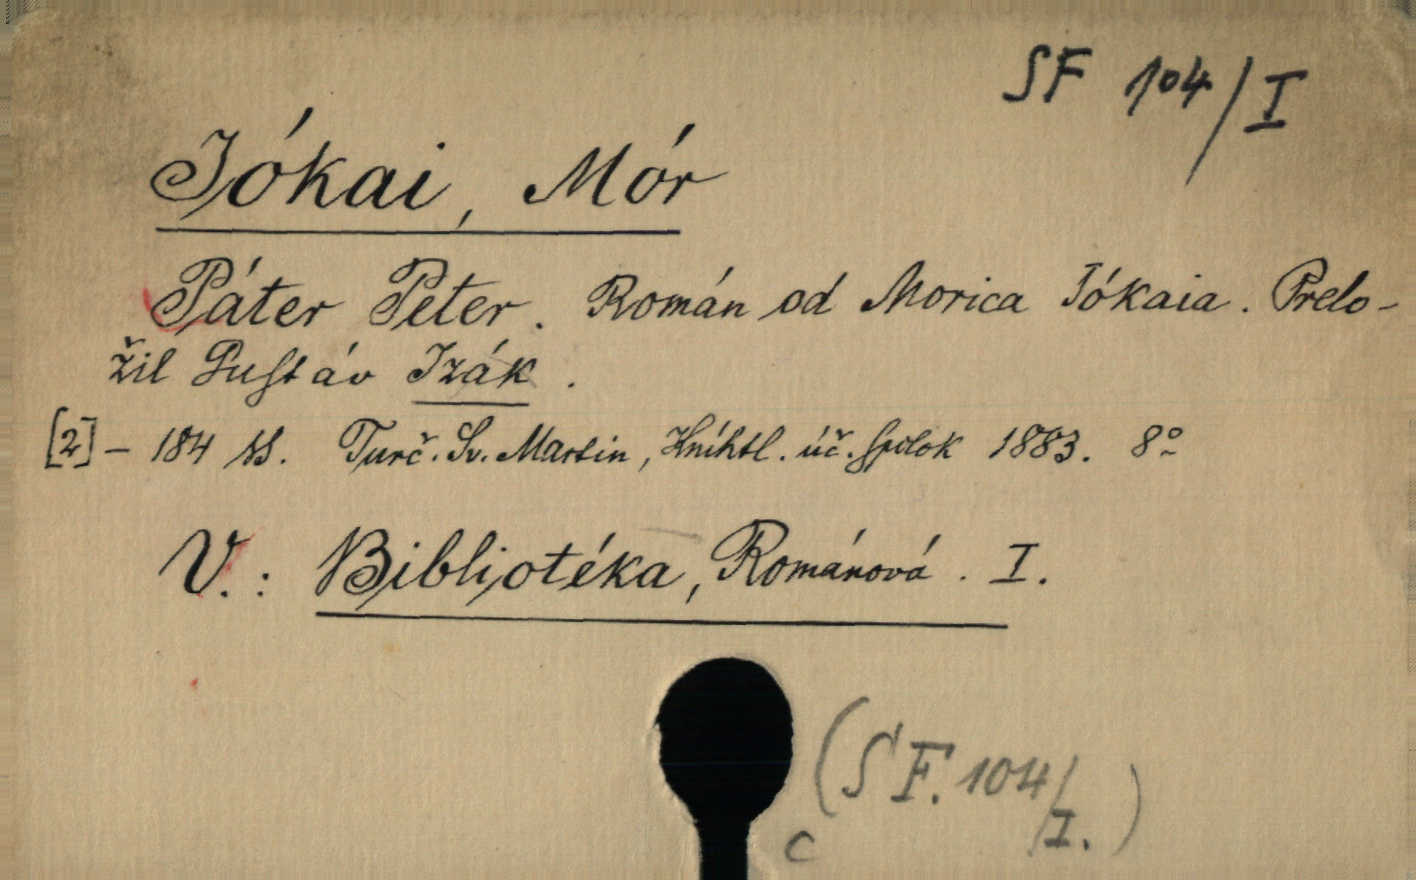 SF 104/I
Jókai, Mór
Páter Peter. Román od Morica Jókaia. Prelo-
žil Gustáv Izák.
[2] - 184 ss. Turč. Sv. Martin, Kníhtl. úč. spolok 1883. 8°
V.: Bibliotéka, Románová. I.
(SF. 104/
I.)
C